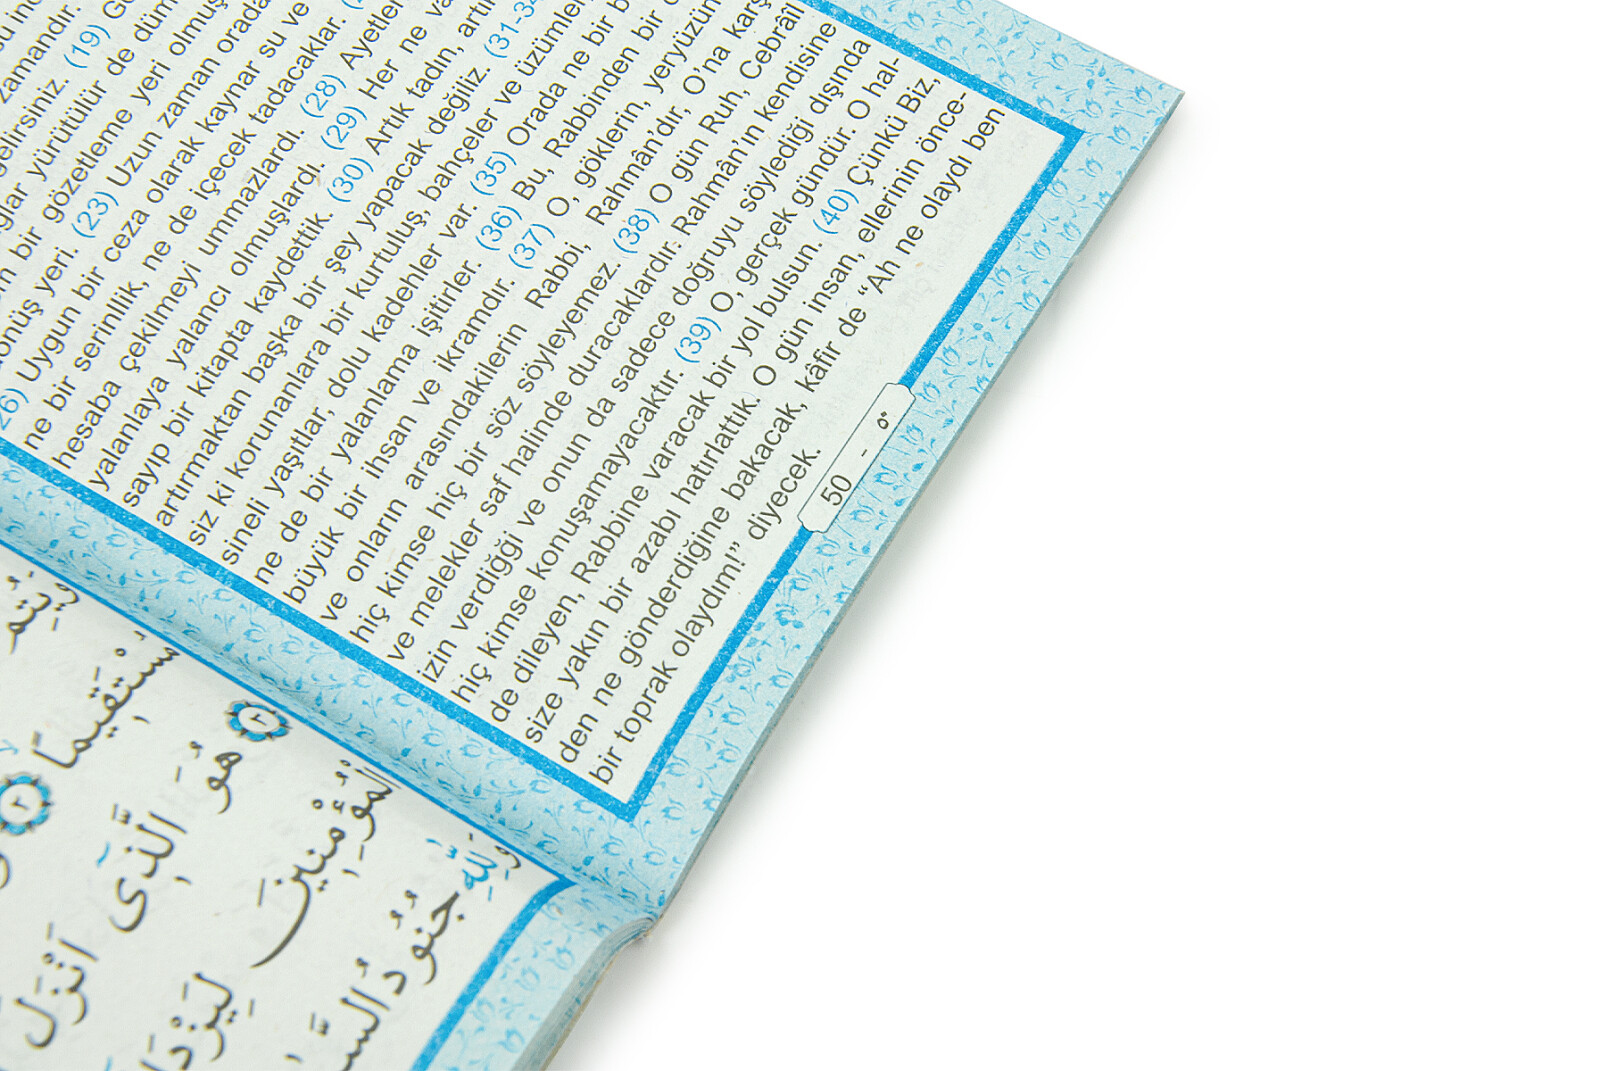 zamandır.
(19)
yürütülür de
bir gözetleme yeri
yeri. (23) Uzun zaman orada
Uygun bir ceza olarak kaynar su ve
ne bir serinlik, ne de içecek tadacaklar.
hesaba çekilmeyi ummazlardı. (28)
yalanlaya yalancı olmuşlardı. (29) Her ne
sayıp bir kitapta kaydettik. (30) Artık tadın,
artırmaktan başka bir şey yapacak değiliz.
siz ki korunanlara bir kurtuluş, bahçeler ve
sineli yaşıtlar, dolu kadehler var. (35) Orada ne bir
ne de bir yalanlama işitirler. (36) Bu, Rabbinden bir
büyük bir ihsan ve ikramdır. (37) O, göklerin,
ve onların arasındakilerin Rabbi, Rahmân’dır, O’na
hiç kimse hiç bir söz söyleyemez. (38) O gün Ruh, Cebrâil
ve melekler saf halinde duracaklardır. Rahmân’ın kendisine
izin verdiğiği ve onun da sadece doğruyu söylediği dışında
hiç kimse konuşamayacaktır. (39) O, gerçek gündür. O hal-
de dileyen, Rabbine varacak bir yol bulsun. (40) Çünkü Biz,
size yakın bir azabı hatırlattık. O gün insan, ellerinin önce-
den ne gönderdiğine bakacak, kâfir de “Ah ne olaydı ben
bir toprak olaydım!” diyecek.
50 - ٥٠
وَيُتِمَّ
مُسْتَقِيمًا ٢
٣ هُوَ الَّذِٓى اَنْزَلَ
الْمُؤْمِنِينَ
وَلِلّٰهِ جُنُودُ